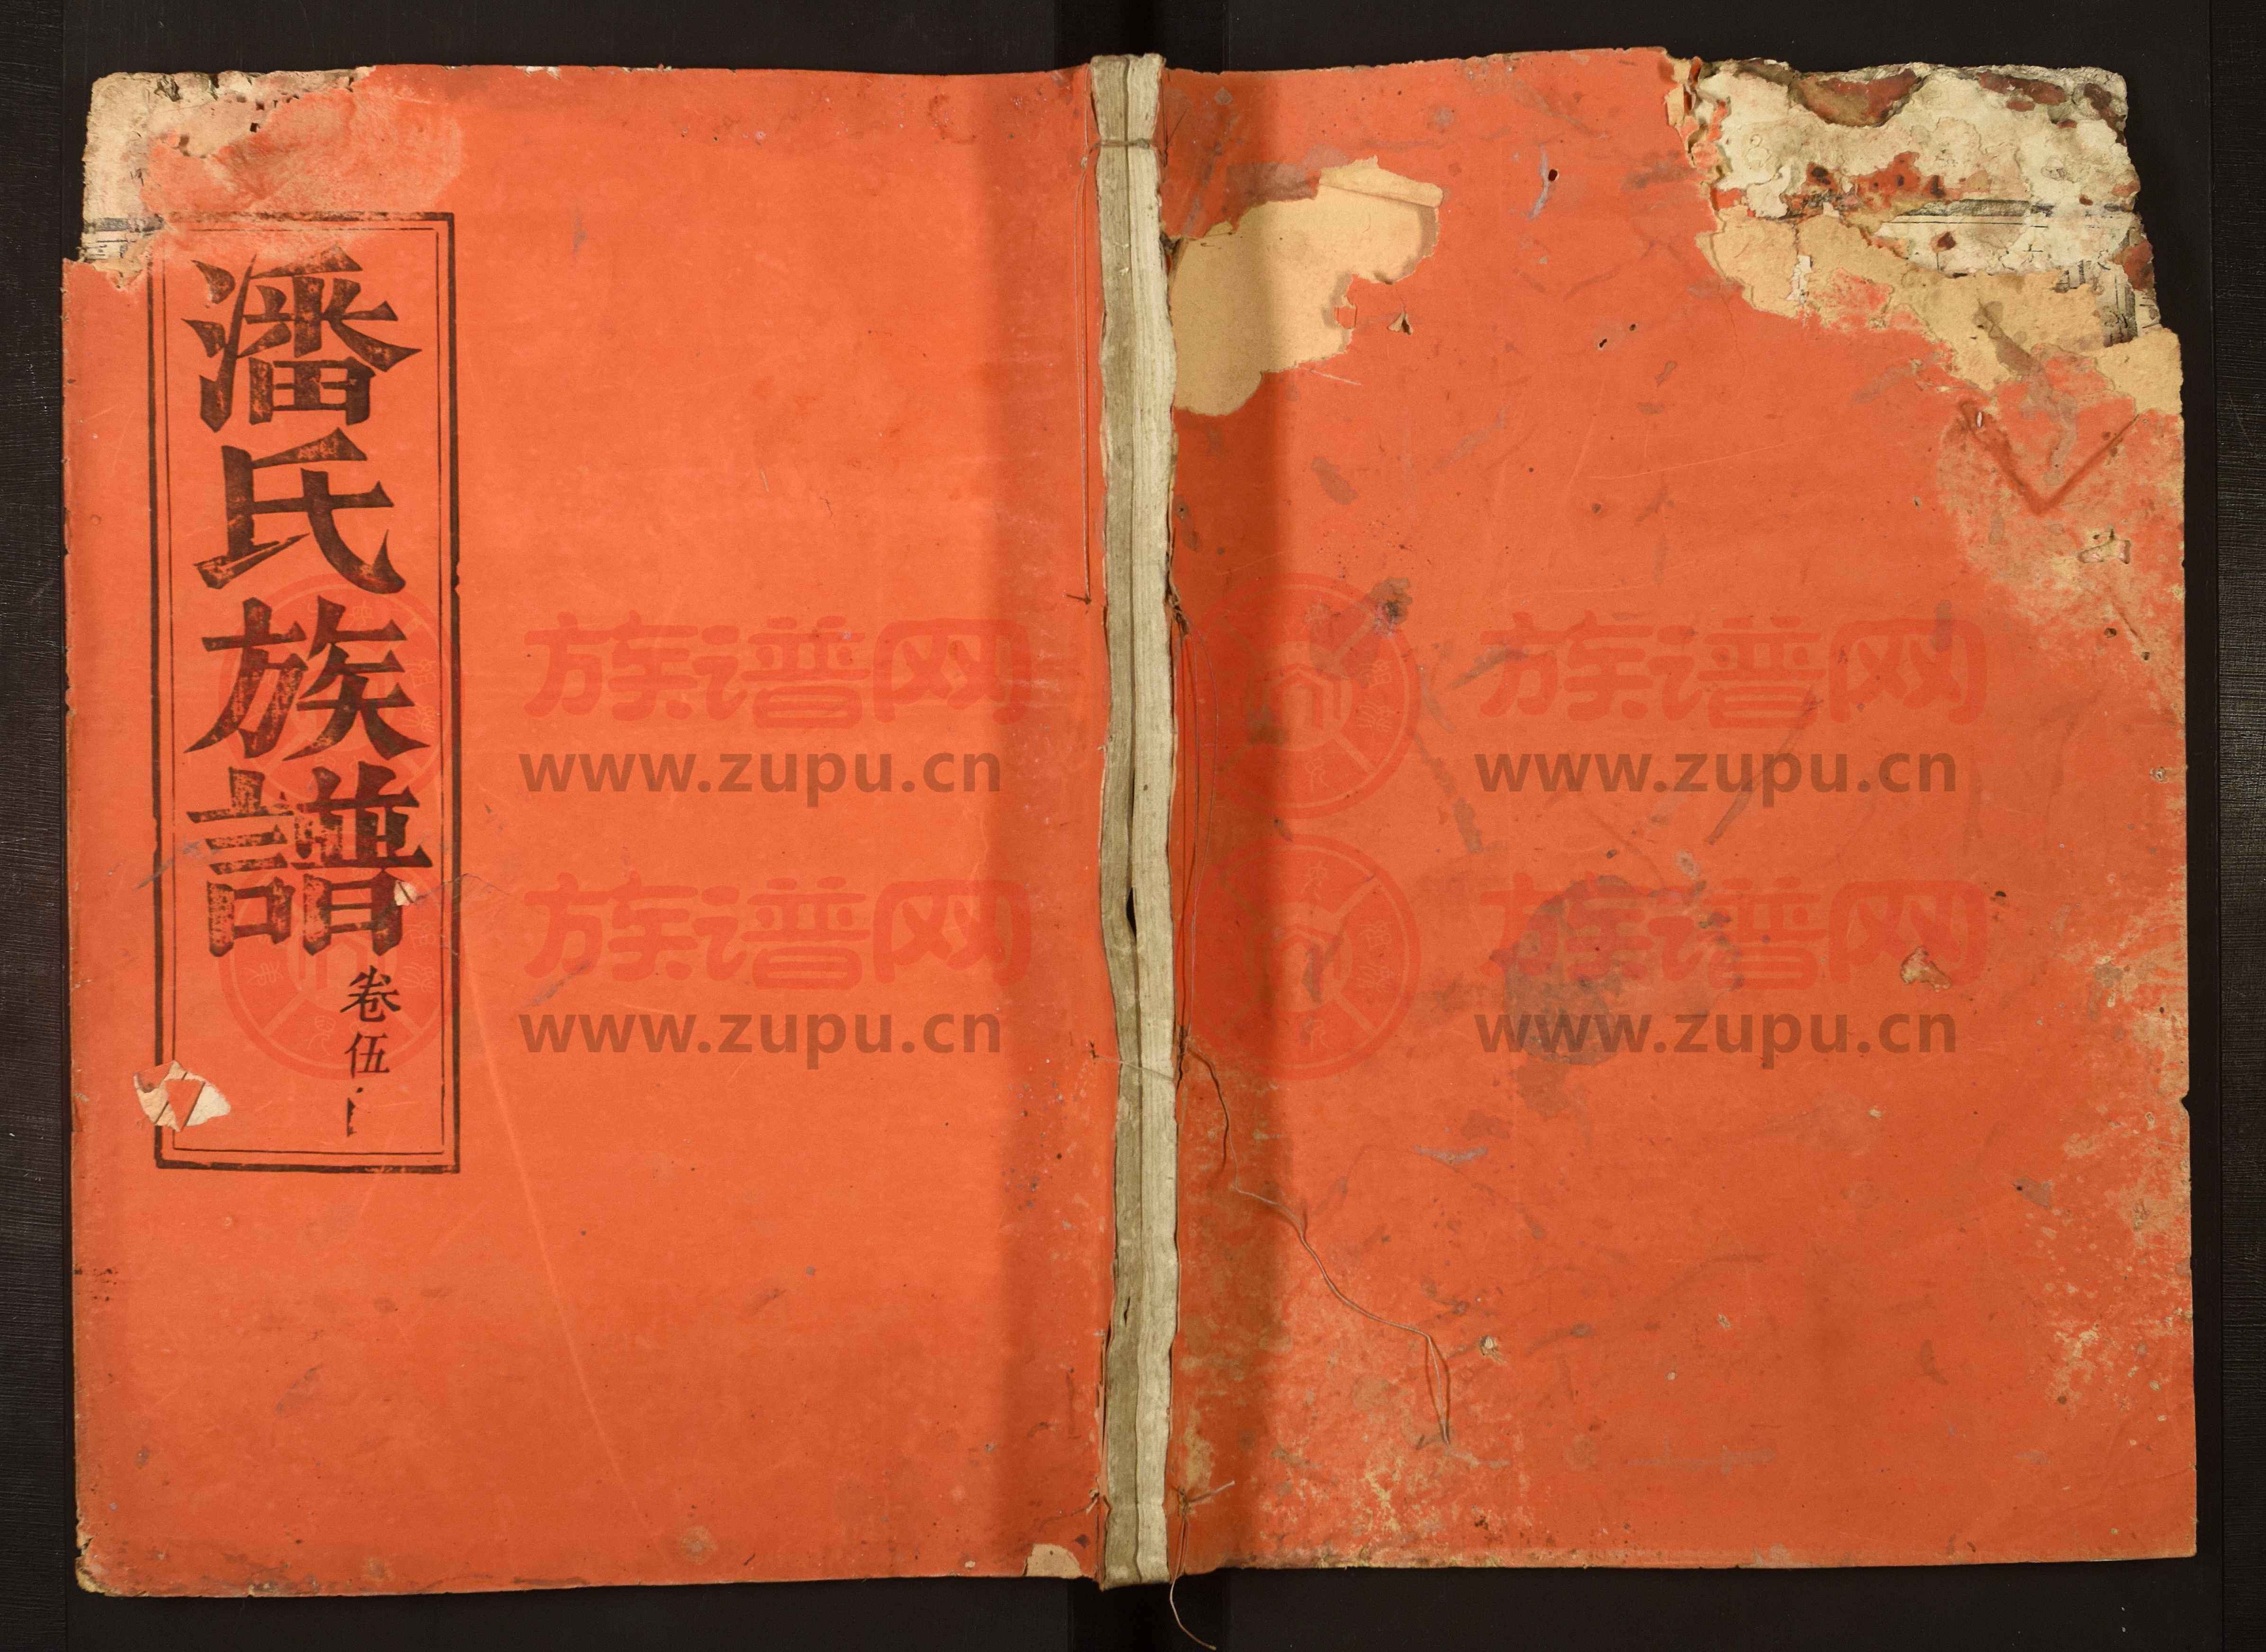 潘氏族譜
卷伍
族谱网
www.zupu.cn
族谱网
www.zupu.cn
族谱网
www.zupu.cn
族谱网
www.zupu.cn